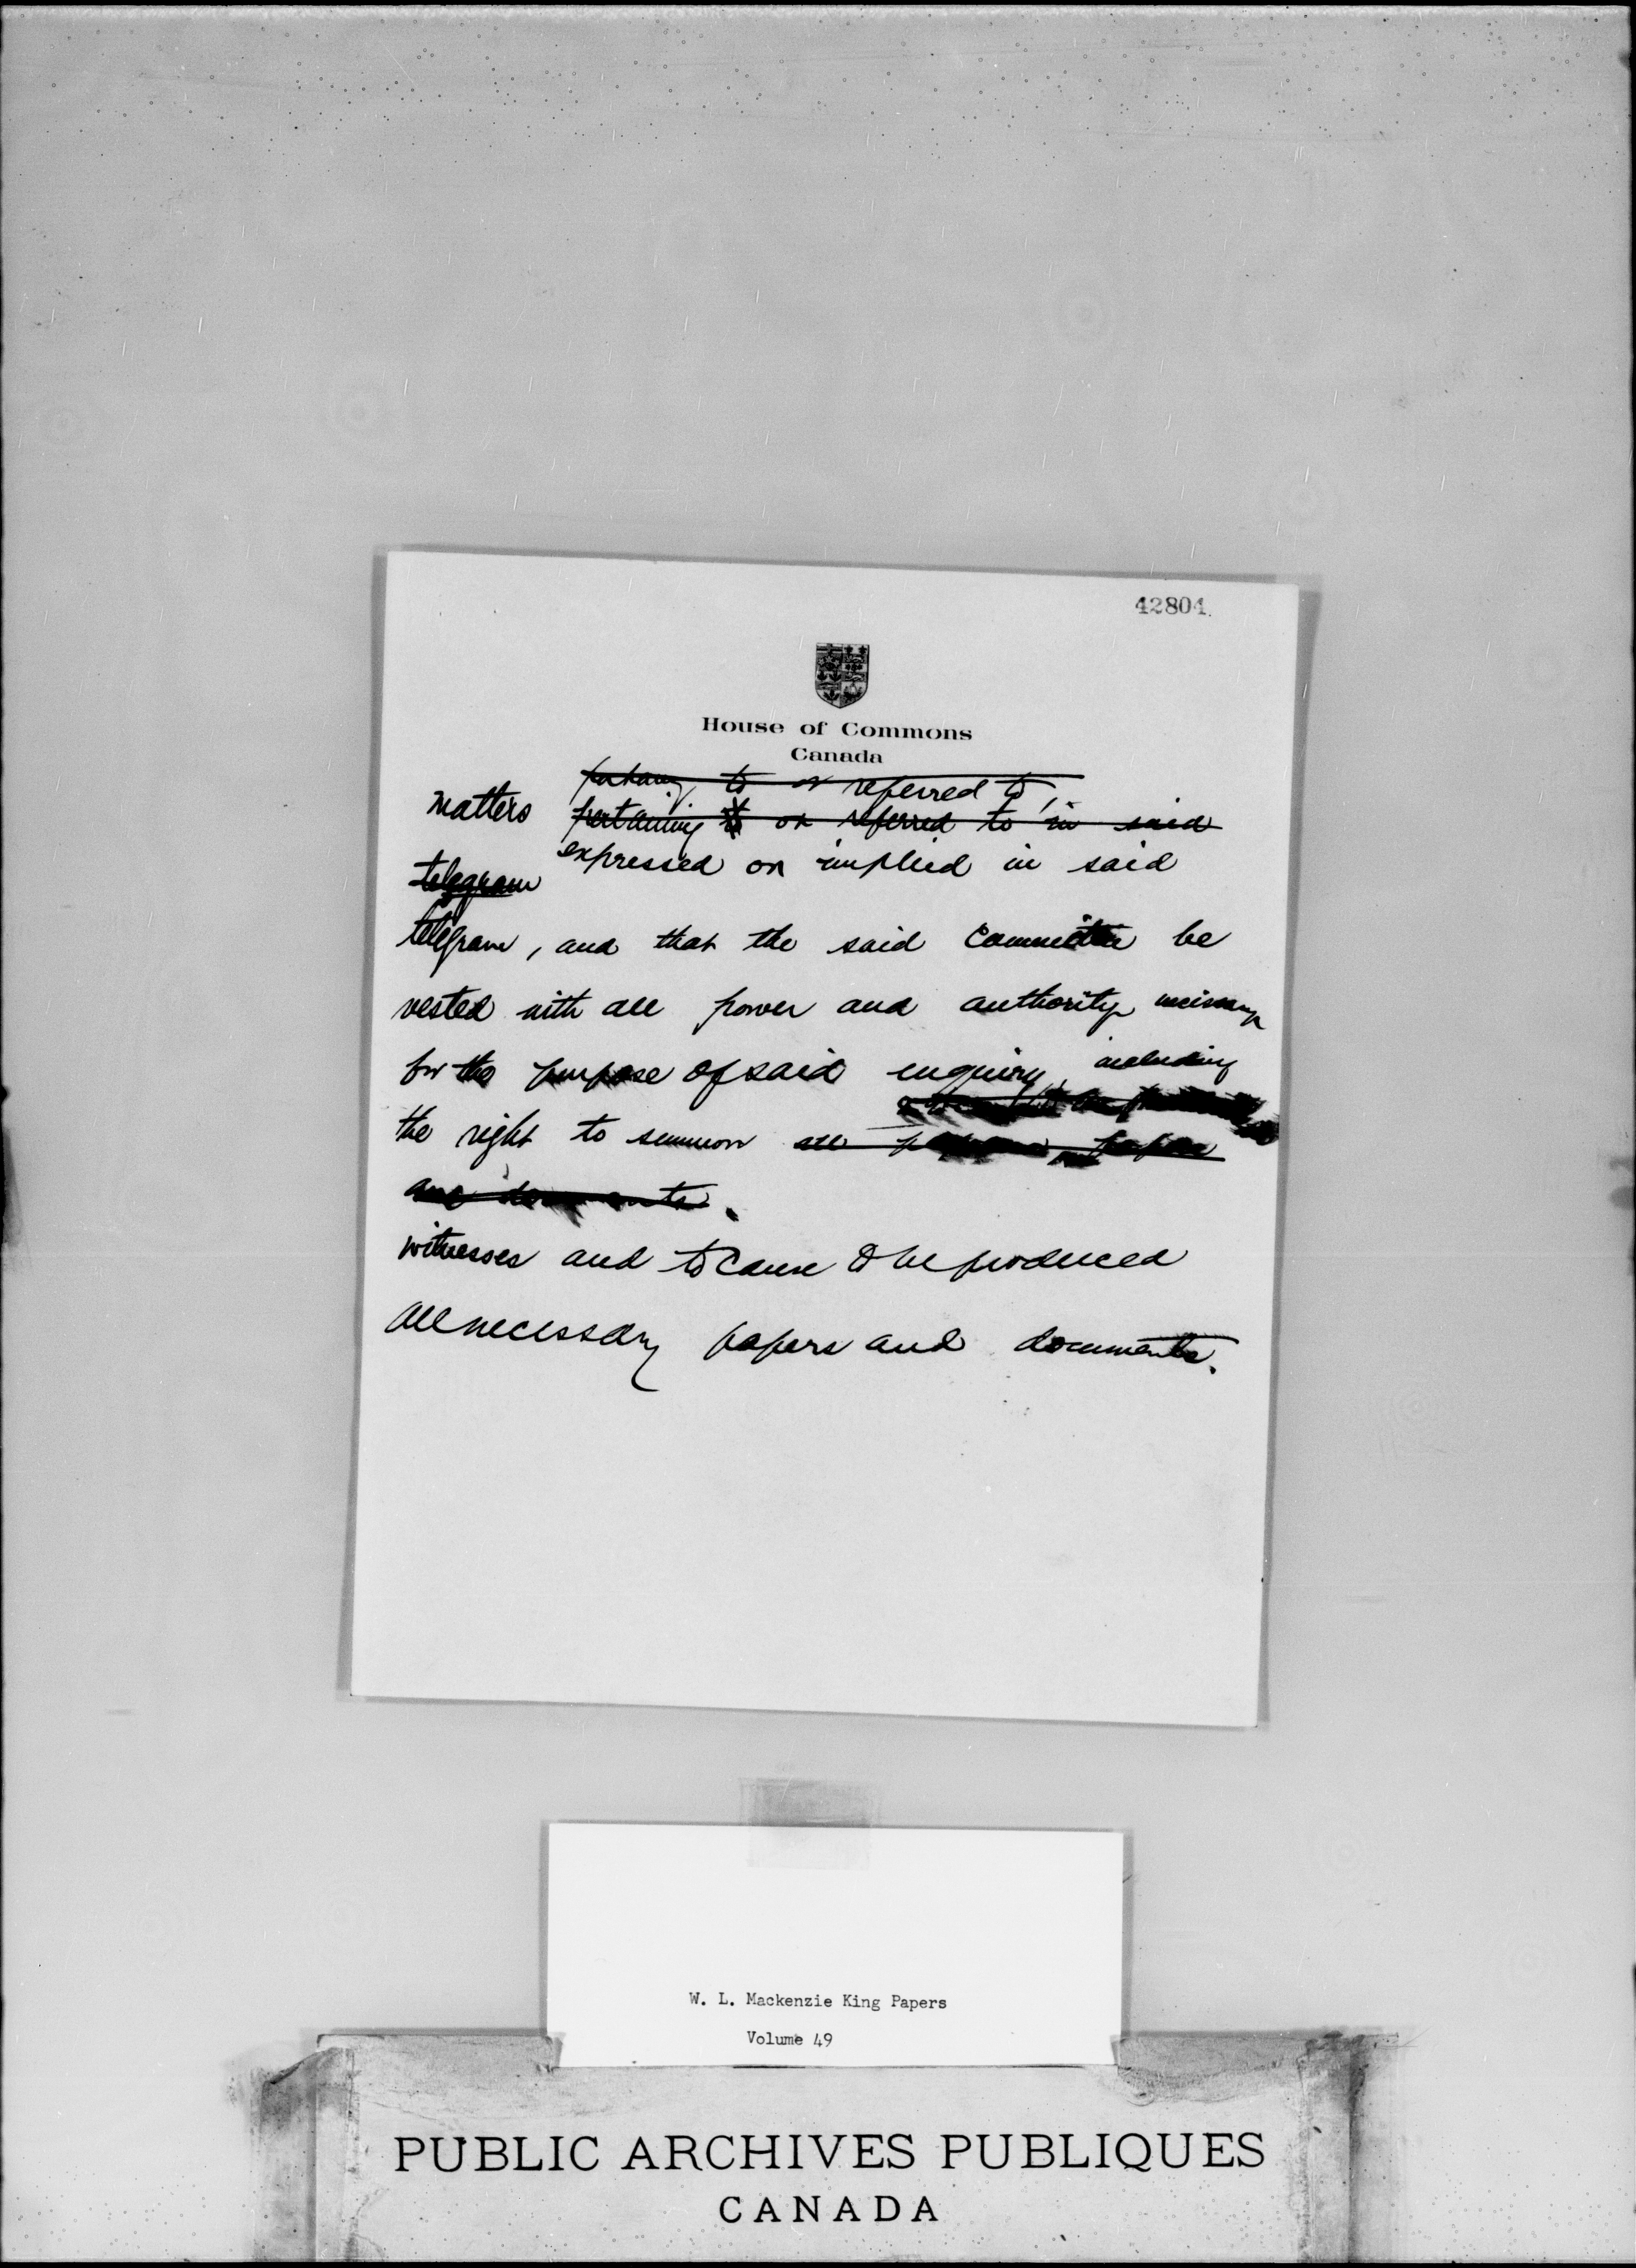 42804
House of Commons
Canada
pertaining to or referred to,
matters pertaining to or referred to in said
expressed or implied in said
telegram
telegram, and that the said Committee be
vested with all power and authority necessary
for the purpose of said enquiry, including
the right to summon all papers
and documents.
witnesses and to cause to be produced
all necessary papers and documents.
W. L. Mackenzie King Papers
Volume 49
PUBLIC ARCHIVES PUBLIQUES
CANADA